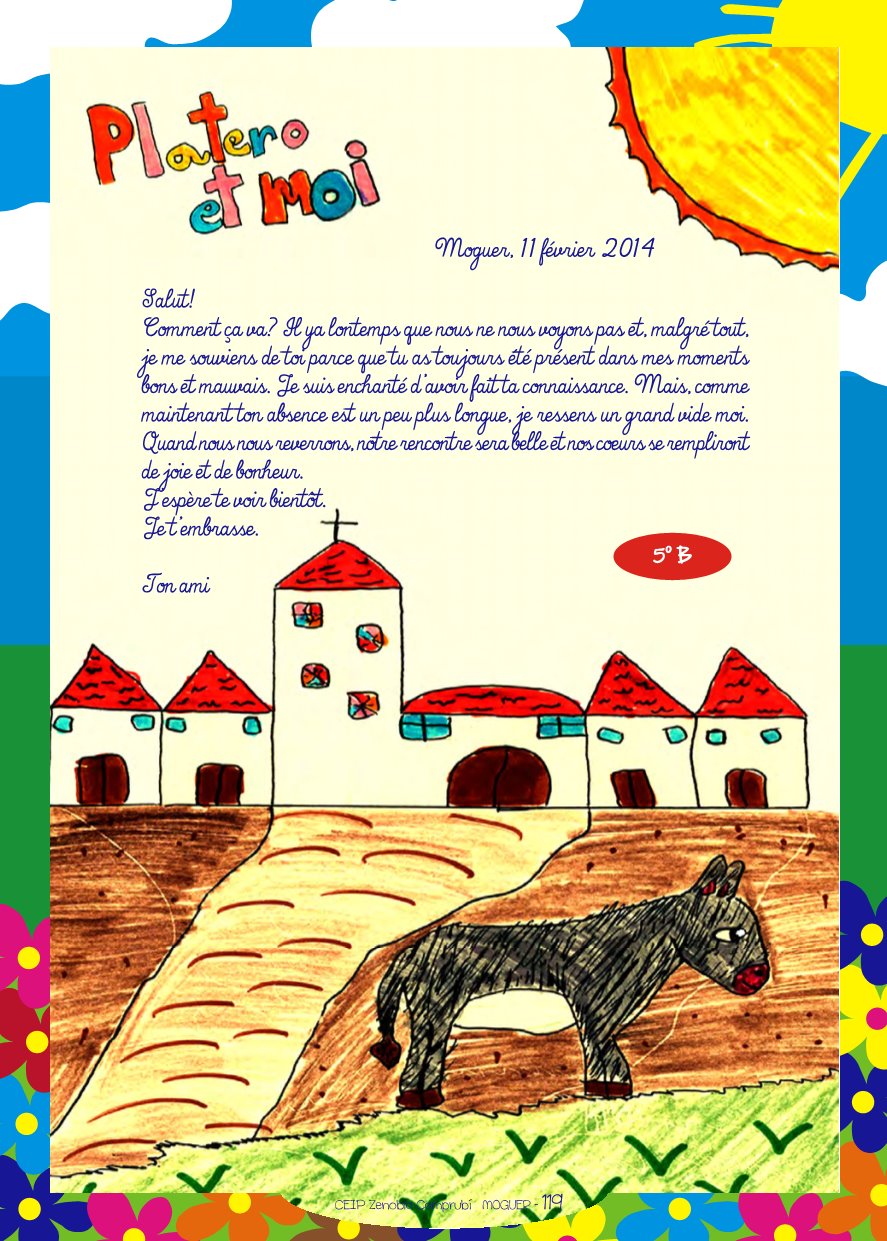 Platero
et moi
Moguer, 11 février 2014
Salut!
Comment ça va? Il ya lontemps que nous ne nous voyons pas et, malgré tout,
je me souviens de toi parce que tu as toujours été présent dans mes moments
bons et mauvais. Je suis enchanté d'avoir fait ta connaissance. Mais, comme
maintenant ton absence est un peu plus longue, je ressens un grand vide moi.
Quand nous nous reverrons, notre rencontre sera belle et nos coeurs se rempliront
de joie et de bonheur.
J'espère te voir bientôt.
Je t'embrasse.
5º B
Ton ami
CEIP Zenobia Camprubí MOGUER - 119